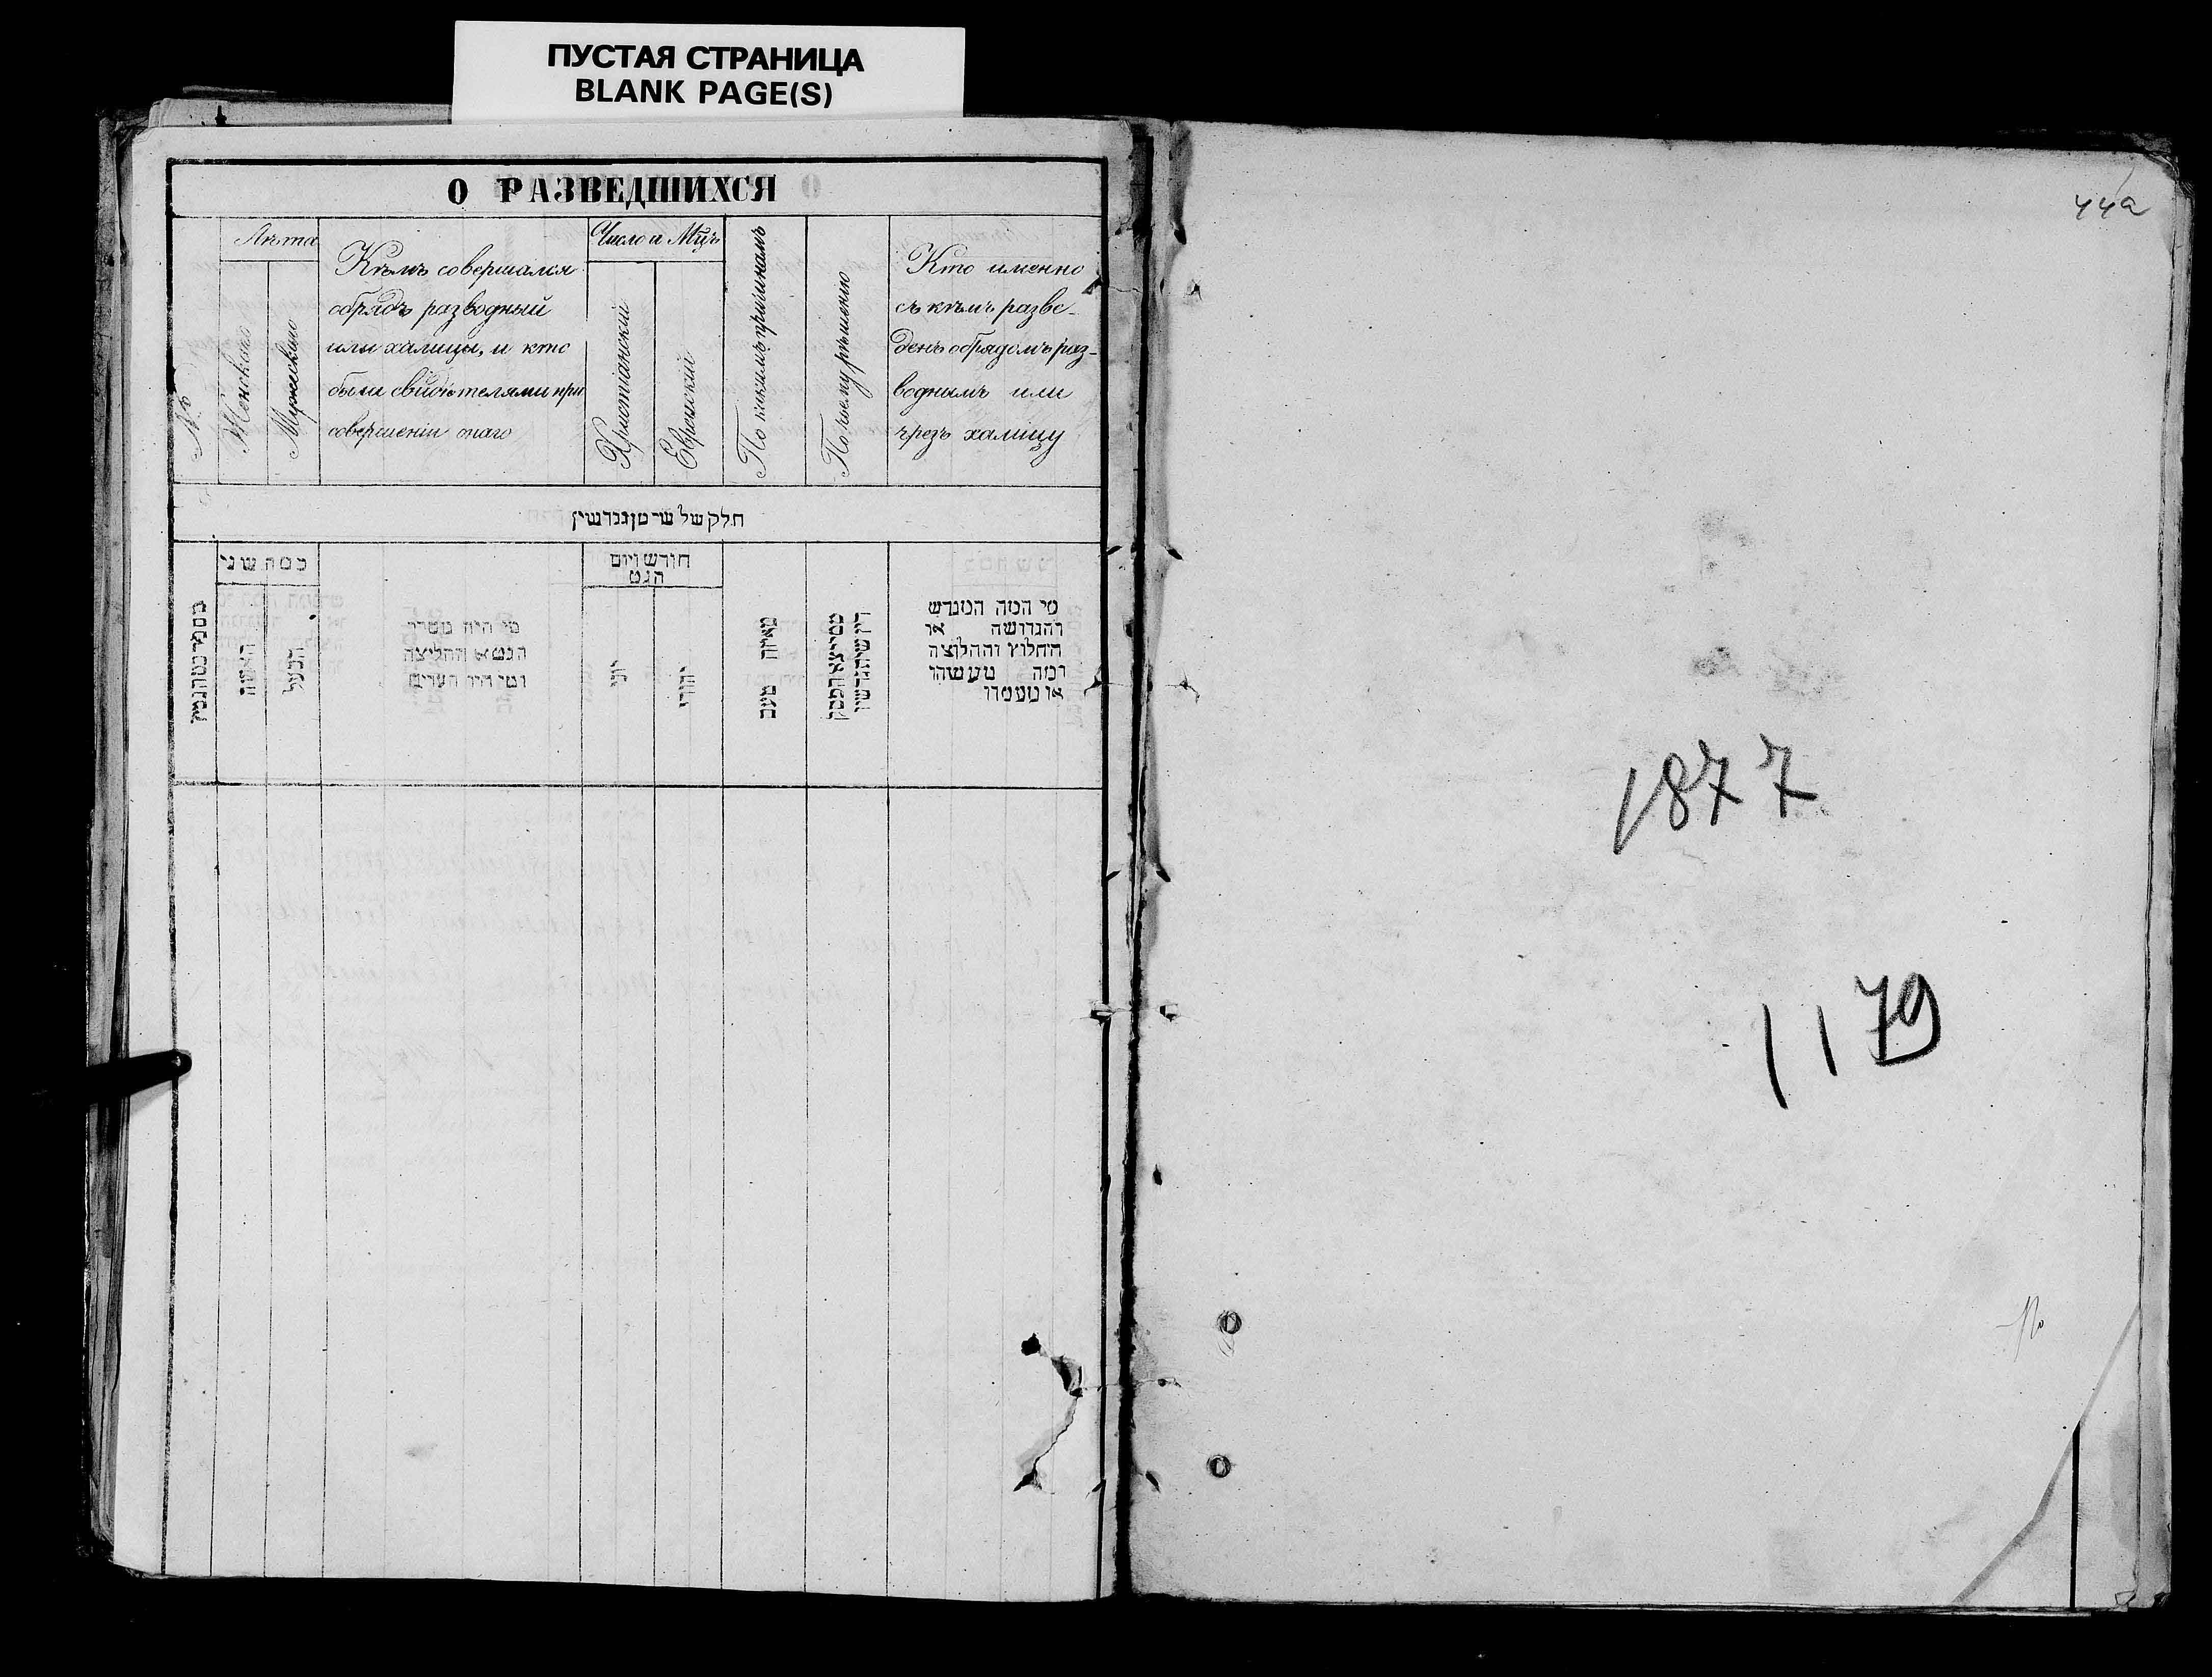 ПУСТАЯ СТРАНИЦА
BLANK PAGE(S)
О РАЗВЕДШИХСЯ
№
Лѣта
Женского
Мужескаго
Кѣмъ совершался
обрядъ разводный
или халицы, и кто
были свидѣтелями при
совершеніи онаго
Число и Мц̃ъ
Христіанскій
Еврейскій
По какимъ причинамъ
По чьему рѣшенію
Кто именно
съ кѣмъ разве-
денъ обрядомъ раз-
воднымъ или
чрезъ халицу
חלק של
כמה שני
האשה
הבעל
מי היה מסדר
הגט או החליצה
ומי היו העדים
חודש ויום
הגט
יוני
יהודי
מאיזה טעם
מי המה המגרש
והגרושה או
החלוץ והחלוצה
ומה מעשהו
או מעמדו
44а
1877
1179